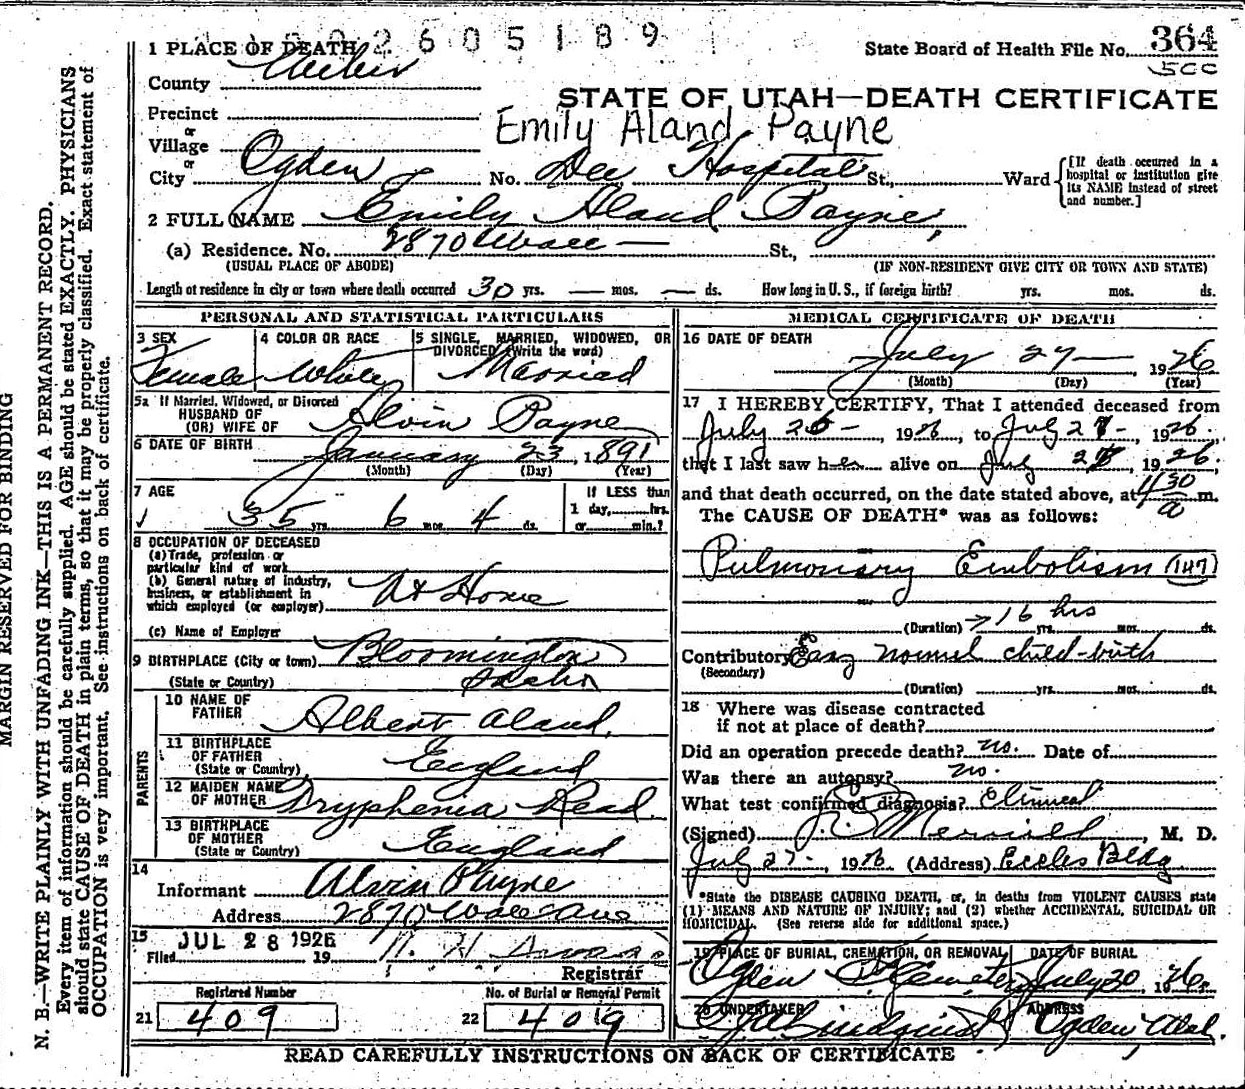 2605189
1 PLACE OF DEATH
State Board of Health File No. 364
500
County Weber
STATE OF UTAH—DEATH CERTIFICATE
Precinct
Emily Aland Payne
or
Village
or
City Ogden No. Dee Hospital St., Ward
[If death occurred in a hospital or institution give its NAME instead of street and number.]
2 FULL NAME Emily Aland Payne,
(a) Residence. No. 2870 Wall — St.,
(USUAL PLACE OF ABODE) (IF NON-RESIDENT GIVE CITY OR TOWN AND STATE)
Length of residence in city or town where death occurred 30 yrs. — mos. — ds. How long in U. S., if foreign birth? yrs. mos. ds.
PERSONAL AND STATISTICAL PARTICULARS
3 SEX 4 COLOR OR RACE 5 SINGLE, MARRIED, WIDOWED, OR DIVORCED (Write the word)
Female White Married
5a If Married, Widowed, or Divorced
HUSBAND OF
(OR) WIFE OF Alvin Payne
6 DATE OF BIRTH January 23, 1891
(Month) (Day) (Year)
7 AGE If LESS than
1 day, hrs.
35 yrs. 6 mos. 4 ds. or min.?
8 OCCUPATION OF DECEASED
(a) Trade, profession or
particular kind of work
(b) General nature of industry,
business, or establishment in
which employed (or employer) At Home
(c) Name of Employer
9 BIRTHPLACE (City or town) Bloomington
(State or Country) Idaho
PARENTS
10 NAME OF
FATHER Albert Aland.
11 BIRTHPLACE
OF FATHER
(State or Country) England
12 MAIDEN NAME
OF MOTHER Tryphenia Read.
13 BIRTHPLACE
OF MOTHER
(State or Country) England
14
Informant Alvin Payne
Address 2870 Wall Ave
15 JUL 28 1926
Filed 19
Registrar
Registered Number No. of Burial or Removal Permit
21 409 22 409
MEDICAL CERTIFICATE OF DEATH
16 DATE OF DEATH
July 27 — 1926
(Month) (Day) (Year)
17 I HEREBY CERTIFY, That I attended deceased from
July 26-, 1926, to July 27-, 1926.
that I last saw her alive on July 27, 1926.
and that death occurred, on the date stated above, at 1130 a m.
The CAUSE OF DEATH* was as follows:
Pulmonary Embolism (147)
(Duration) 16 hrs yrs. mos. ds.
Contributory Easy normal child-birth
(Secondary)
(Duration) yrs. mos. ds.
18 Where was disease contracted
if not at place of death?
Did an operation precede death? no. Date of
Was there an autopsy? no.
What test confirmed diagnosis? Clinical
(Signed) Merrill, M. D.
July 27-, 1926 (Address) Eccles Bldg
*State the DISEASE CAUSING DEATH, or, in deaths from VIOLENT CAUSES state
(1) MEANS AND NATURE OF INJURY; and (2) whether ACCIDENTAL, SUICIDAL OR
HOMICIDAL. (See reverse side for additional space.)
19 PLACE OF BURIAL, CREMATION, OR REMOVAL DATE OF BURIAL
Ogden Cemetery July 30, 1926.
20 UNDERTAKER ADDRESS
Lindquist Ogden Utah.
READ CAREFULLY INSTRUCTIONS ON BACK OF CERTIFICATE
MARGIN RESERVED FOR BINDING
N. B.—WRITE PLAINLY WITH UNFADING INK—THIS IS A PERMANENT RECORD.
Every item of information should be carefully supplied. AGE should be stated EXACTLY. PHYSICIANS
should state CAUSE OF DEATH in plain terms, so that it may be properly classified. Exact statement of
OCCUPATION is very important. See instructions on back of certificate.